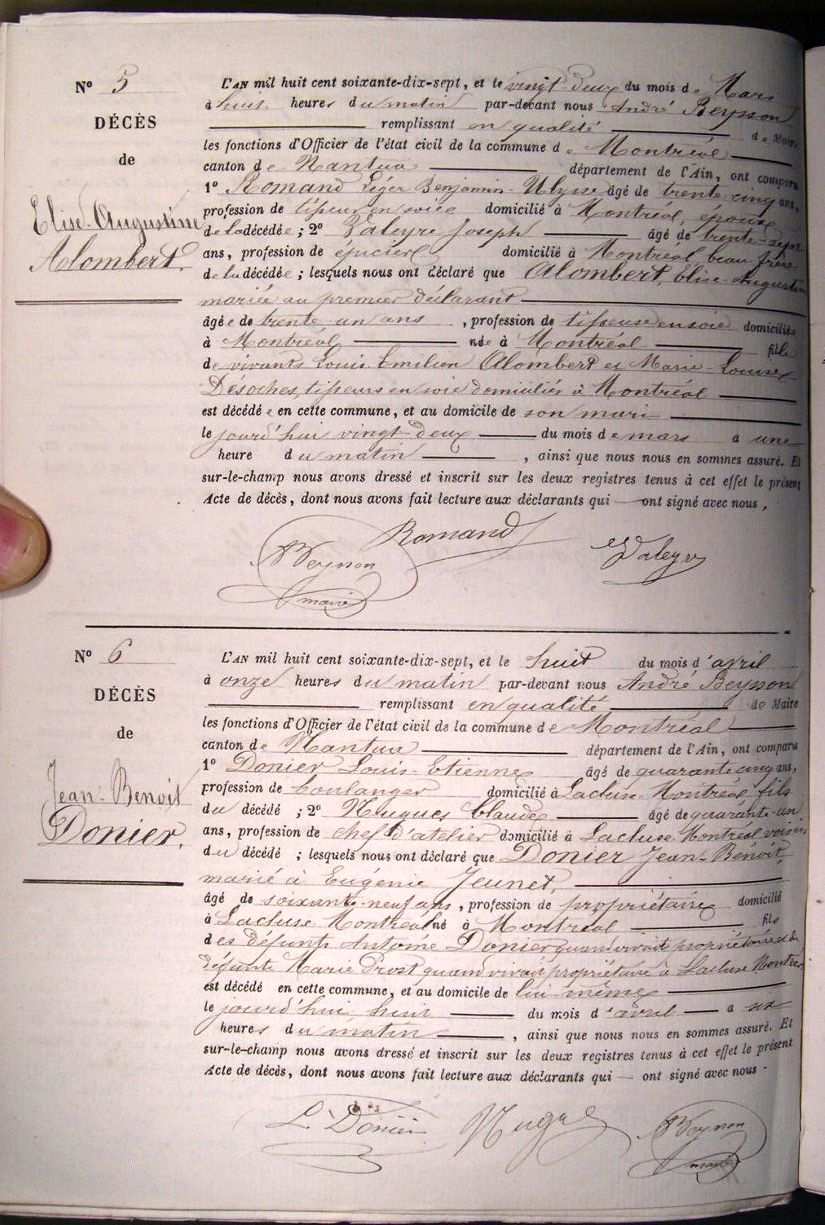 N° 5
DÉCÈS
de
Elise-Augustine
Alombert.
L'AN mil huit cent soixante-dix-sept, et le vingt-deux du mois de Mars
à huit heures du matin par-devant nous André Beysson
remplissant en qualité de Maire
les fonctions d'Officier de l'état civil de la commune de Montréal
canton de Nantua département de l'Ain, ont comparu
1° Romand Léger Benjamin-Ulysse âgé de trente cinq ans,
profession de tisseur en soie domicilié à Montréal, époux
de la décédée; 2° Valeyre Joseph âgé de trente-sept
ans, profession de épicier domicilié à Montréal beau frère
de la décédée; lesquels nous ont déclaré que Alombert, Elise-Augustine
mariée au premier déclarant
âgée de trente un ans, profession de tisseuse en soie domiciliée
à Montréal née à Montréal fille
de vivants Louis Emilien Alombert et Marie-Louise
Desoches, tisseurs en soie domiciliés à Montréal
est décédée en cette commune, et au domicile de son mari
le jourd'hui vingt deux du mois de mars à une
heure du matin, ainsi que nous nous en sommes assuré. Et
sur-le-champ nous avons dressé et inscrit sur les deux registres tenus à cet effet le présent
Acte de décès, dont nous avons fait lecture aux déclarants qui ont signé avec nous.
Romand
Beysson
Valeyre
maire
N° 6
DÉCÈS
de
Jean-Benoit
Donier.
L'AN mil huit cent soixante-dix-sept, et le huit du mois d'avril
à onze heures du matin par-devant nous André Beysson
remplissant en qualité de Maire
les fonctions d'Officier de l'état civil de la commune de Montréal
canton de Nantua département de l'Ain, ont comparu
1° Donier Louis-Etienne âgé de quarante cinq ans,
profession de boulanger domicilié à Lacluse-Montréal fils
du décédé; 2° Nugues Claude âgé de quarante-un
ans, profession de chef d'atelier domicilié à Lacluse Montréal voisin
du décédé; lesquels nous ont déclaré que Donier Jean-Benoit,
marié à Eugénie Jeunet,
âgé de soixante-neuf ans, profession de propriétaire domicilié
à Lacluse Montréal né à Montréal fils
des défunts Antoine Donier quand vivait propriétaire et de
défunte Marie Prost quand vivait propriétaire à Lacluse Montréal
est décédé en cette commune, et au domicile de lui-même
le jourd'hui huit du mois d'avril à six
heures du matin, ainsi que nous nous en sommes assuré. Et
sur-le-champ nous avons dressé et inscrit sur les deux registres tenus à cet effet le présent
Acte de décès, dont nous avons fait lecture aux déclarants qui — ont signé avec nous.
L. Donier
Beysson
maire